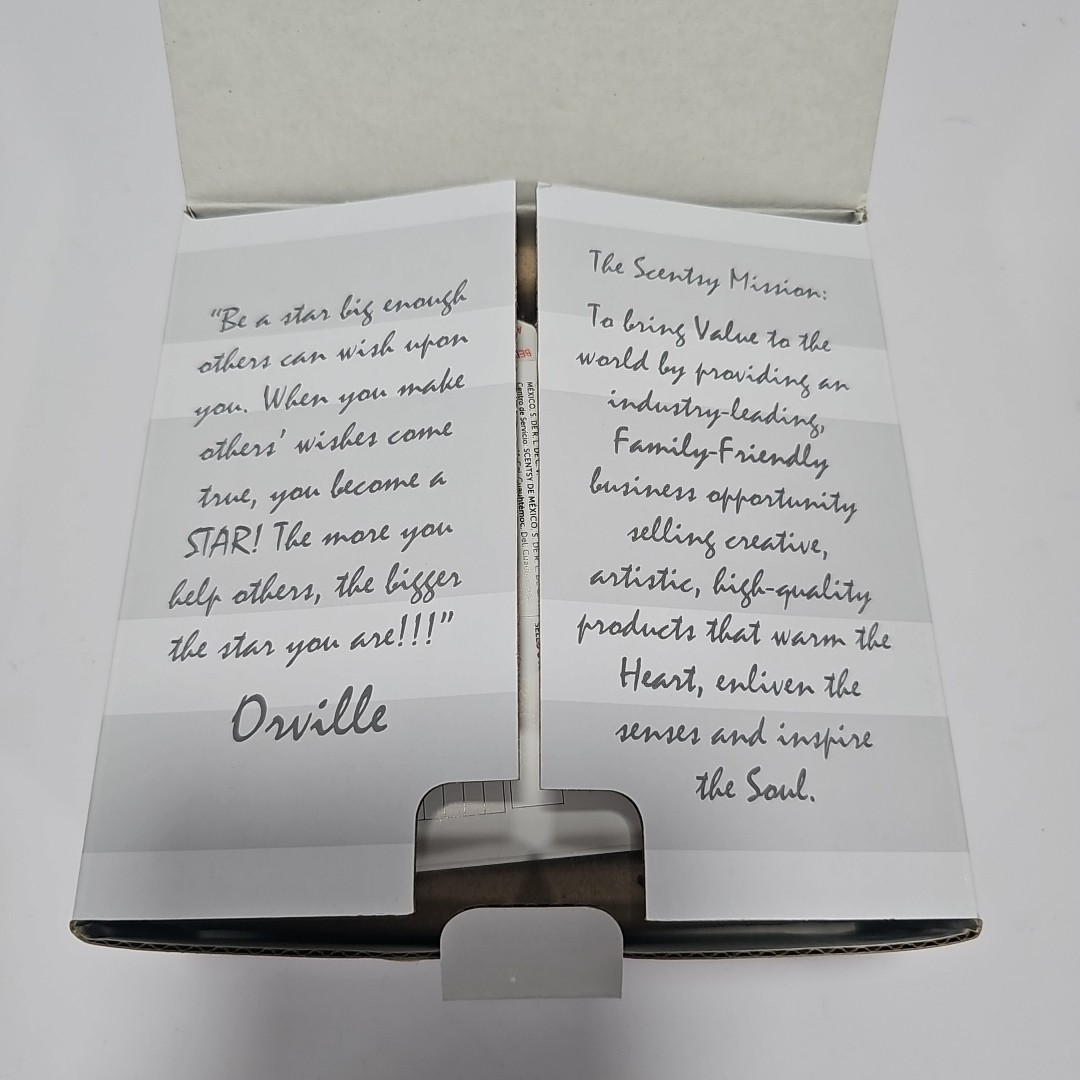 "Be a star big enough
others can wish upon
you. When you make
others' wishes come
true, you become a
STAR! The more you
help others, the bigger
the star you are!!!"
Orville
The Scentsy Mission:
To bring Value to the
world by providing an
industry-leading,
Family-Friendly
business opportunity
selling creative,
artistic, high-quality
products that warm the
Heart, enliven the
senses and inspire
the Soul.
MÉXICO, S. DE R. L. DE C. V.
Centro de Servicio: SCENTSY DE MÉXICO, S. DE R. L. DE
Cuauhtémoc, Del.